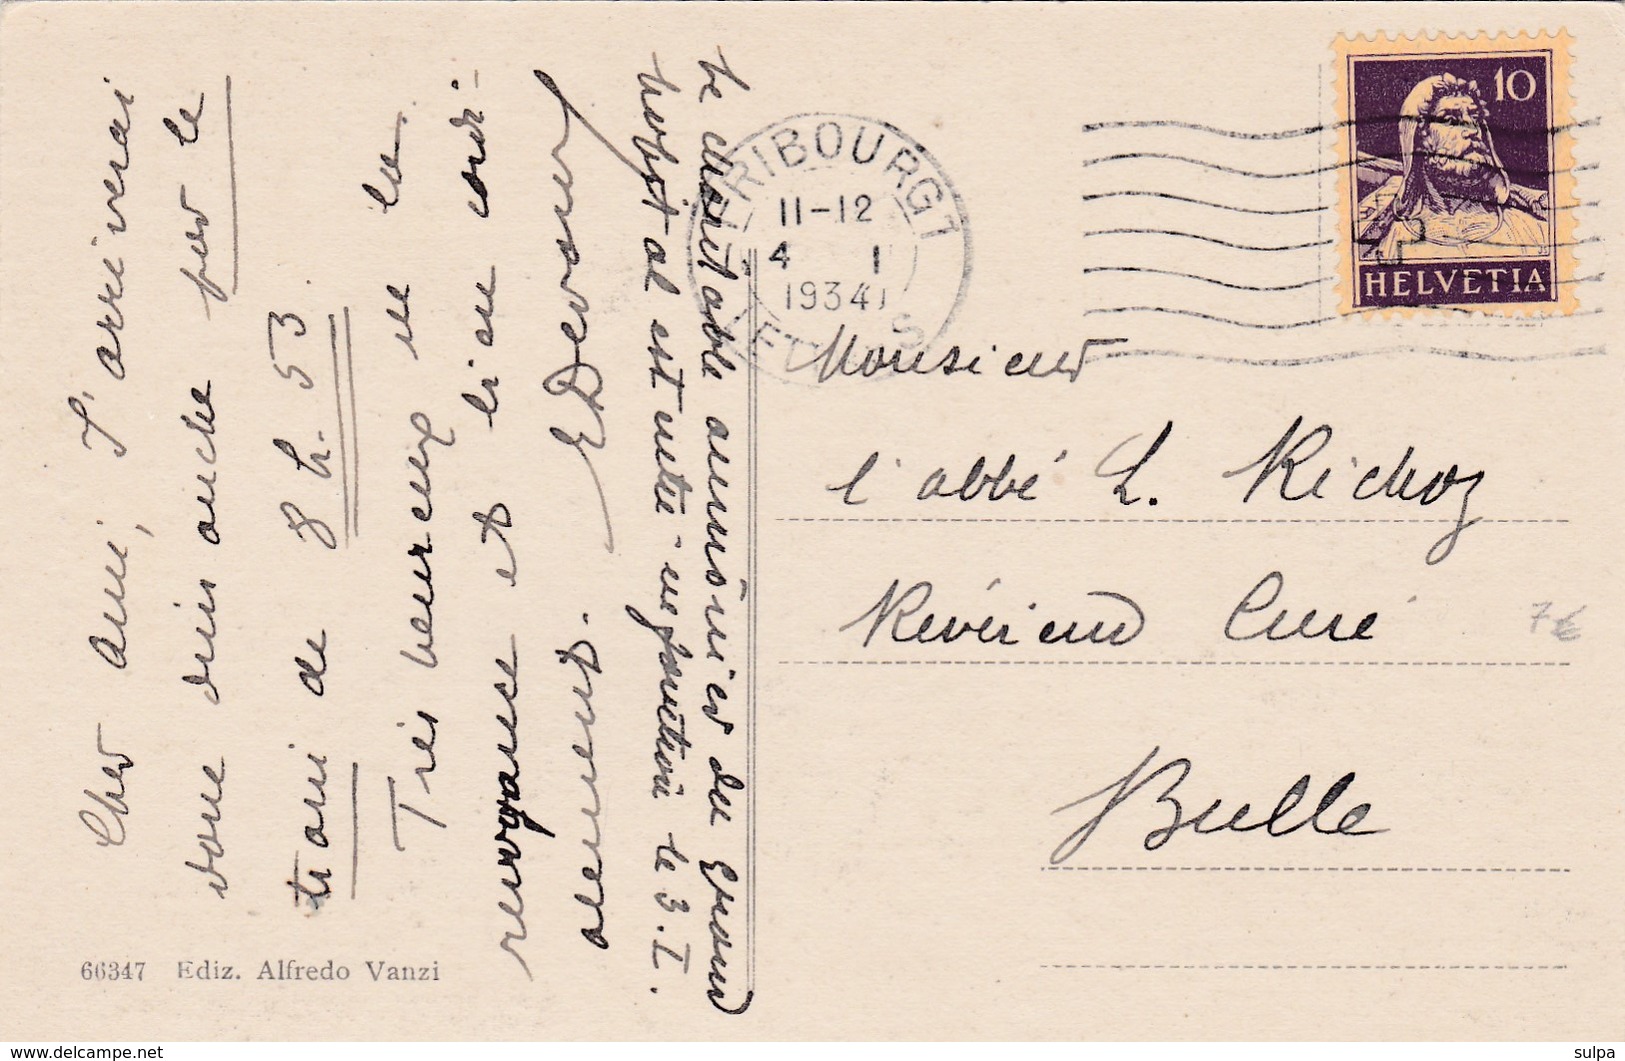 Cher ami, J'arriverai
donc dimanche par le
train de 8 h. 53
Très heureux de la
et bien cordi-
alement. E Devaud
Le charitable aumônier du grand
hôpital est entré en fonction le 3. I.
66347 Ediz. Alfredo Vanzi
FRIBOURG 1
11-12
4 I
1934
10
HELVETIA
Monsieur
l'abbé L. Richoz
Révérend Curé
Bulle
7 €
delcampe.net
sulpa